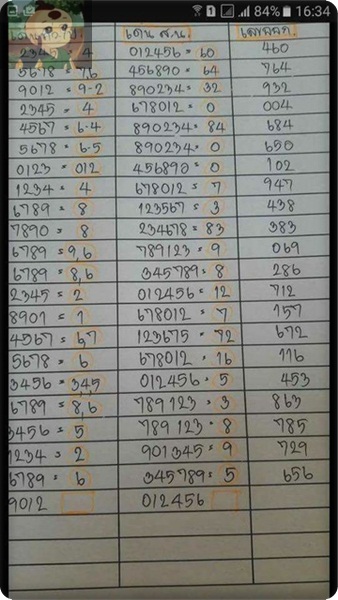 84% 16:34
เด่น ส.น. เลขออก
2345 = 4 012456 = 60 460
5678 = 7,6 456890 = 64 764
9012 = 9-2 890234 = 32 932
2345 = 4 678012 = 0 004
4567 = 6-4 890234 = 84 684
5678 = 6-5 890234 = 0 650
0123 = 012 456890 = 0 102
1234 = 4 678012 = 7 947
6789 = 8 123567 = 3 438
7890 = 8 234678 = 83 383
6789 = 9,6 789123 = 9 069
6789 = 8,6 345789 = 8 286
2345 = 2 012456 = 12 712
8901 = 1 678012 = 7 157
4567 = 6,7 123675 = 72 672
5678 = 6 678012 = 16 116
3456 = 345 012456 = 5 453
6789 = 8,6 789123 = 3 863
3456 = 5 789123 = 8 785
1234 = 2 901345 = 9 729
6789 = 6 345789 = 5 656
9012 012456